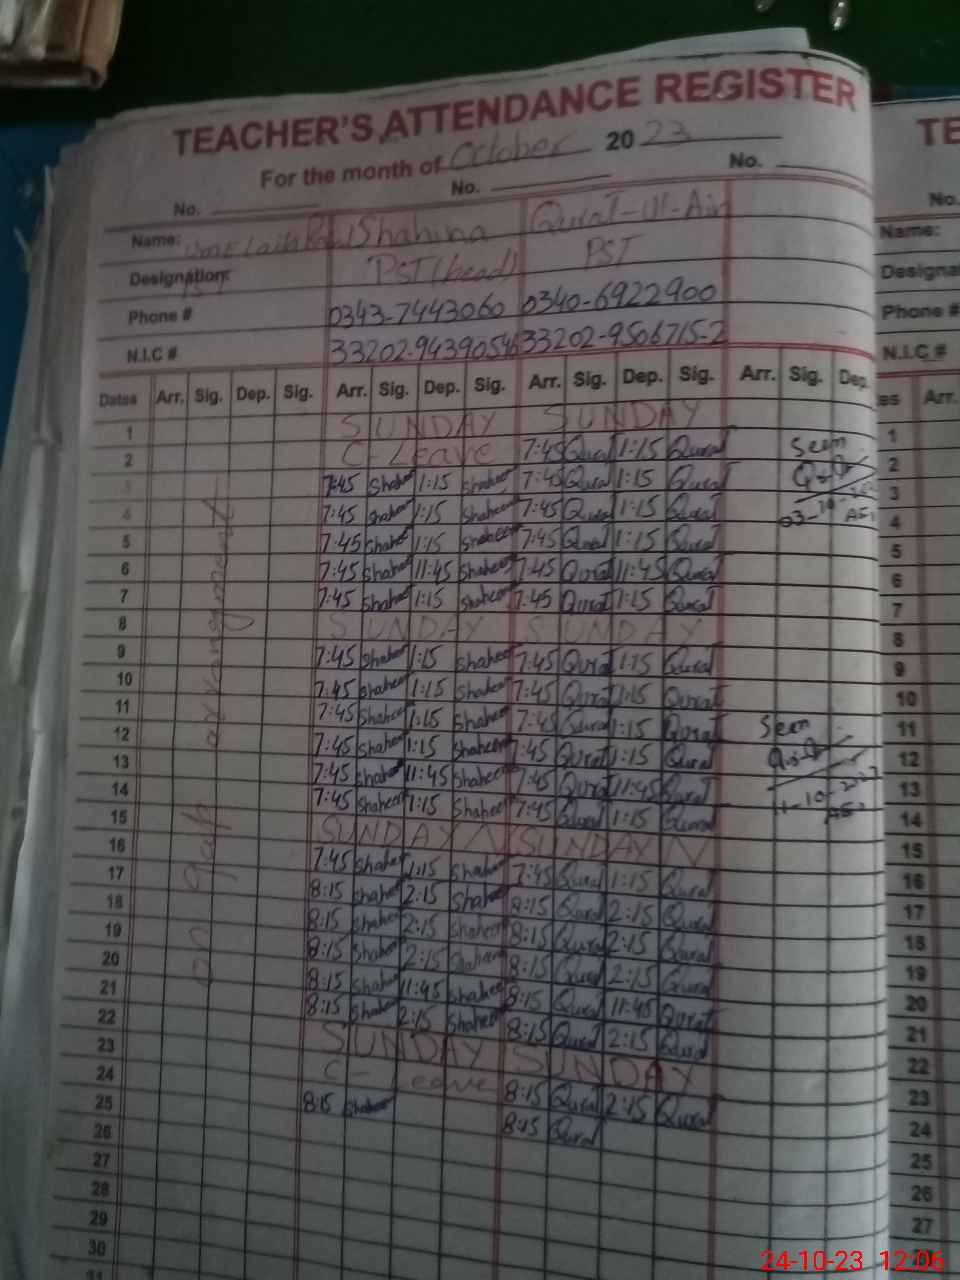 TEACHER'S ATTENDANCE REGISTER
For the month of October 2023
No. No. No.
Name: Shahina Qurat-ul-Ain
Designation: PST PST (head) PST
Phone # 0343-7443060 0340-6922900
N.I.C # 33202-9439054 33202-9506715-2
Dates Arr. Sig. Dep. Sig. Arr. Sig. Dep. Sig. Arr. Sig. Dep. Sig. Arr. Sig. Dep.
on gath arrangment
1 SUNDAY SUNDAY
2 C-Leave 7:45 Qurat 1:15 Qurat Seen
3 7:45 Shaheen 1:15 Shaheen 7:45 Qurat 1:15 Qurat
4 7:45 Shaheen 1:15 Shaheen 7:45 Qurat 1:15 Qurat 03-10-
5 7:45 Shaheen 1:15 Shaheen 7:45 Qurat 1:15 Qurat
6 7:45 Shaheen 11:45 Shaheen 7:45 Qurat 11:45 Qurat
7 7:45 Shaheen 1:15 Shaheen 7:45 Qurat 1:15 Qurat
8 SUNDAY SUNDAY
9 7:45 Shaheen 1:15 Shaheen 7:45 Qurat 1:15 Qurat
10 7:45 Shaheen 1:15 Shaheen 7:45 Qurat 1:15 Qurat
11 7:45 Shaheen 1:15 Shaheen 7:45 Qurat 1:15 Qurat Seen
12 7:45 Shaheen 1:15 Shaheen 7:45 Qurat 1:15 Qurat
13 7:45 Shaheen 11:45 Shaheen 7:45 Qurat 11:45 Qurat
14 7:45 Shaheen 1:15 Shaheen 7:45 Qurat 1:15 Qurat
15 SUNDAY SUNDAY
16 7:45 Shaheen 1:15 Shaheen 7:45 Qurat 1:15 Qurat
17 8:15 Shaheen 2:15 Shaheen 8:15 Qurat 2:15 Qurat
18 8:15 Shaheen 2:15 Shaheen 8:15 Qurat 2:15 Qurat
19 8:15 Shaheen 2:15 Shaheen 8:15 Qurat 2:15 Qurat
20 8:15 Shaheen 11:45 Shaheen 8:15 Qurat 11:45 Qurat
21 8:15 Shaheen 2:15 Shaheen 8:15 Qurat 2:15 Qurat
22 SUNDAY SUNDAY
23 C-Leave 8:15 Qurat 2:15 Qurat
24 8:15 Shaheen 8:15 Qurat
25
26
27
28
29
30
31
TE
No.
Name:
Designa
Phone #
N.I.C #
es Arr.
1
2
3
4
5
6
7
8
9
10
11
12
13
14
15
16
17
18
19
20
21
22
23
24
25
26
27
24-10-23 12:06